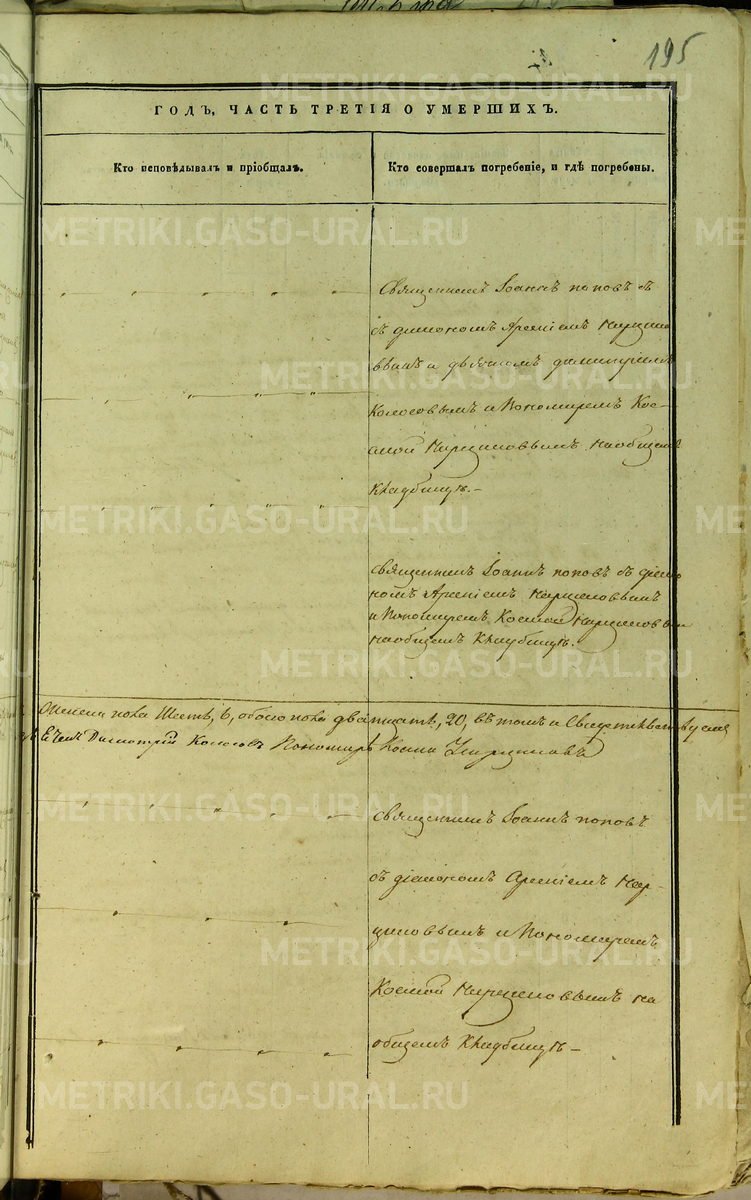 195
ГОДЪ, ЧАСТЬ ТРЕТІЯ О УМЕРШИХЪ.
Кто исповѣдывалъ и пріобщалъ.
Кто совершалъ погребеніе, и гдѣ погребены.
Священникъ Іоаннъ поповъ съ
діакономъ Арсеніемъ
вымъ и дьячкомъ димитріемъ
Колосовымъ и Пономаремъ Кос-
мой наобщемъ
Кладбищѣ.-
священникъ Іоаннъ поповъ съ діако
номъ Арсеніемъ
и Пономаремъ Космой
наобщемъ Кладбищѣ.
пола Шесть, 6, обоего пола двацать, 20, въ томъ и Свидетельствуемъ
Димитрій Колосовъ Пономарь Косма
священникъ Іоаннъ поповъ
съ діакономъ Арсеніемъ
и Пономаремъ
Космой на
общемъ Кладбищѣ-
METRIKI.GASO-URAL.RU